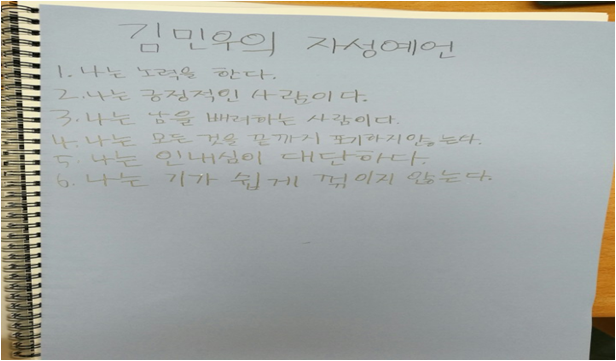 김민우의 자성예언
1. 나는 노력을 한다.
2. 나는 긍정적인 사람이다.
3. 나는 남을 배려하는 사람이다.
4. 나는 모든 것을 끝까지 포기하지않는다.
5. 나는 인내심이 대단하다.
6. 나는 기가 쉽게 꺾이지 않는다.